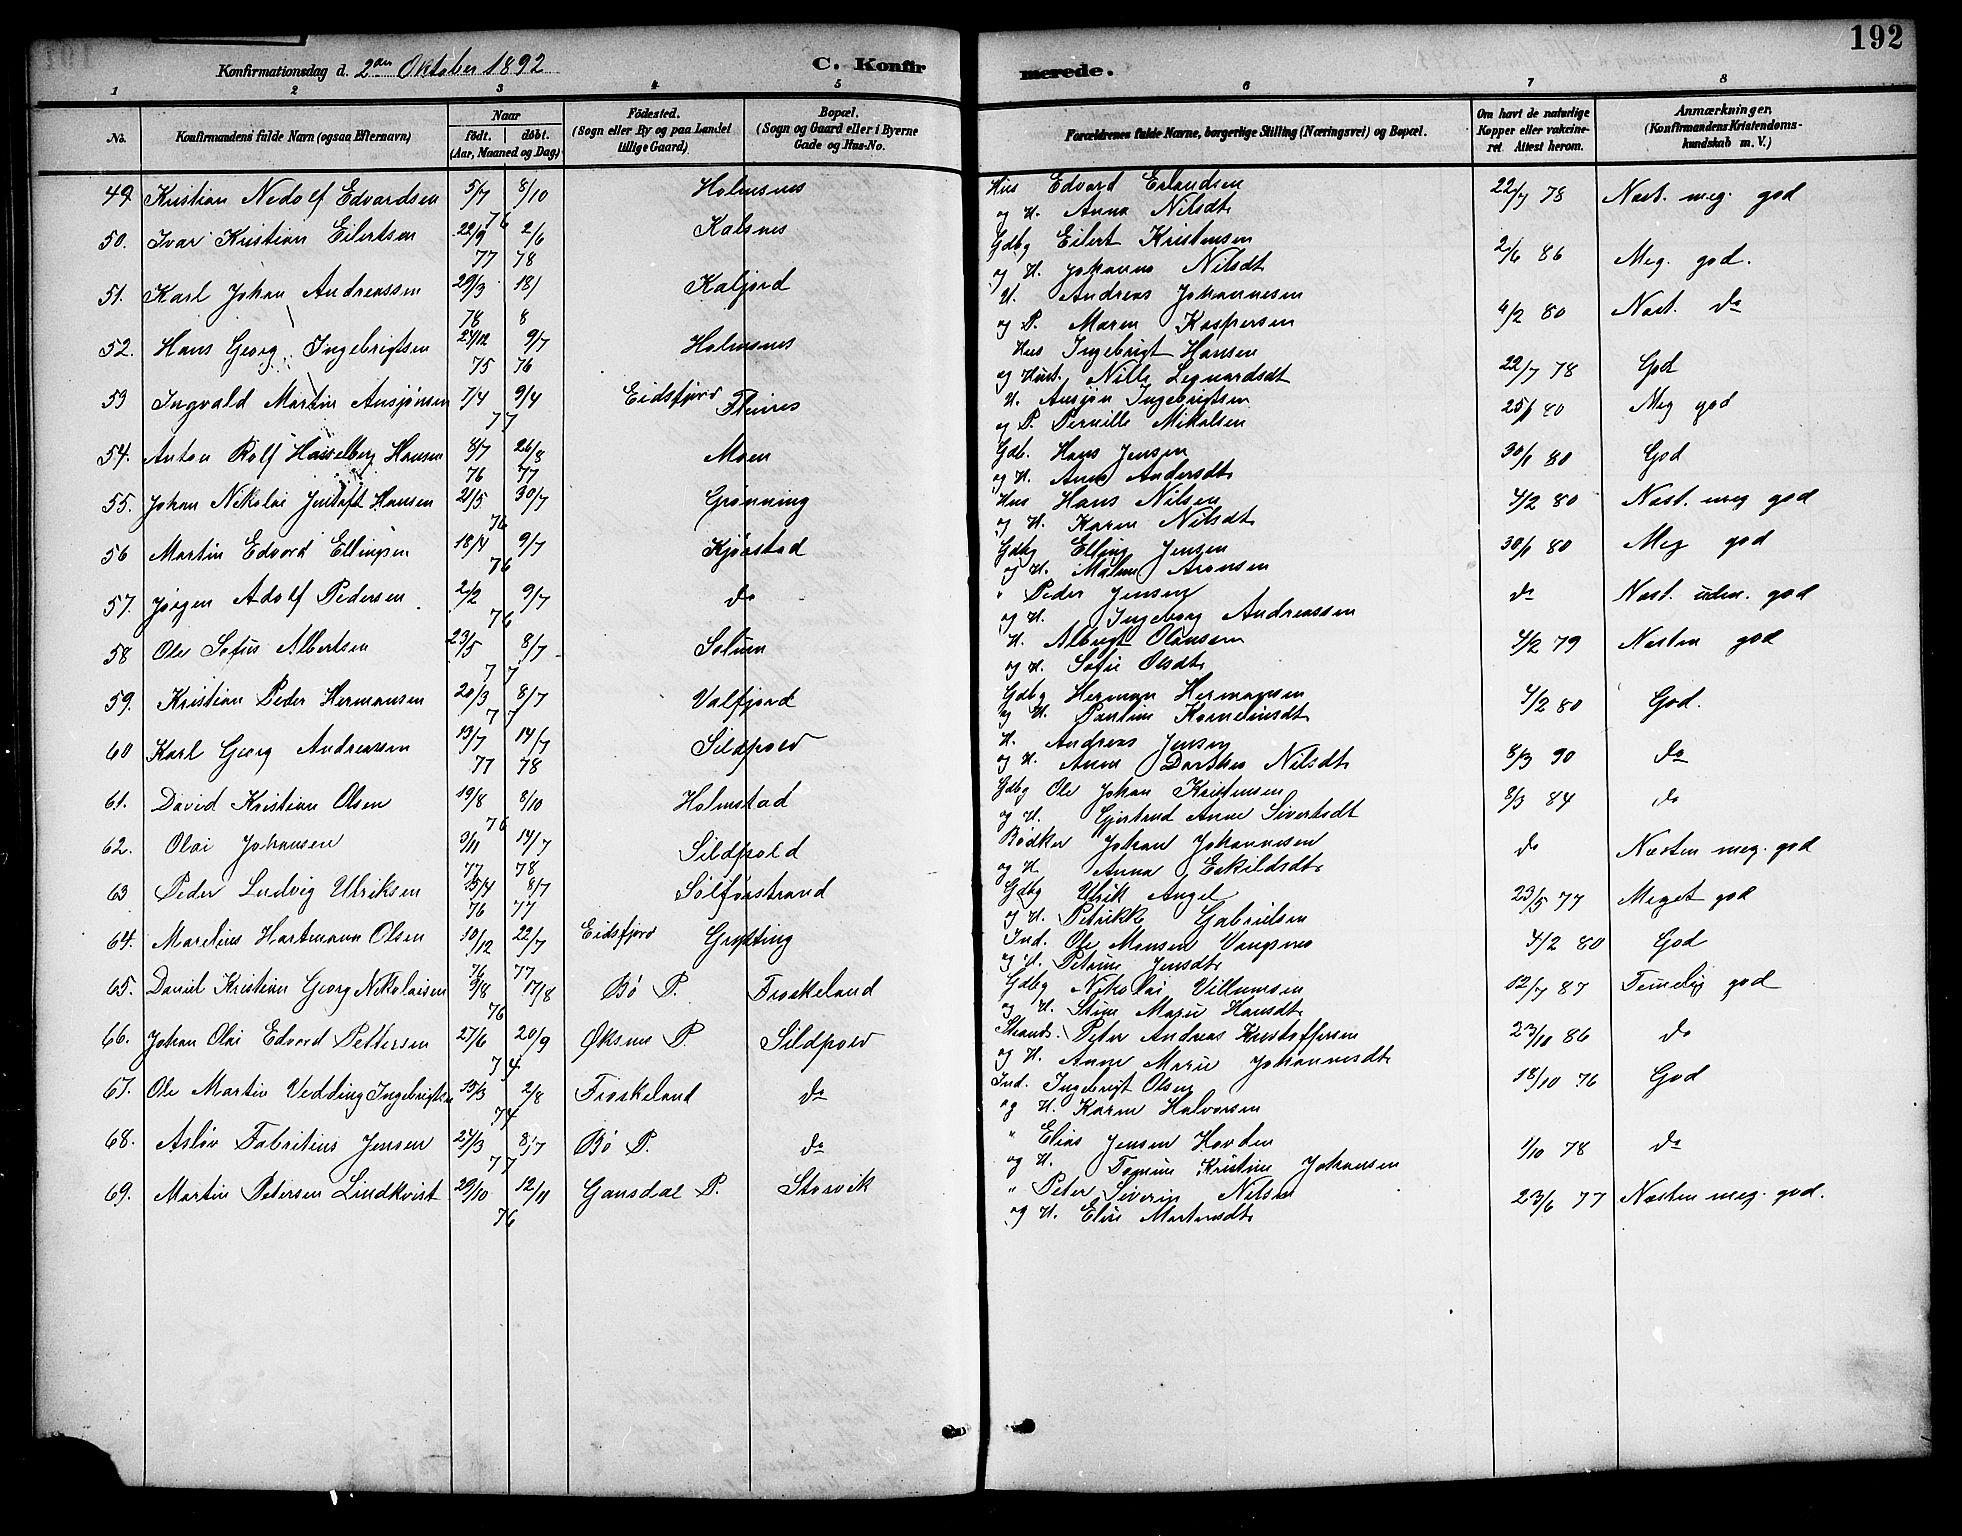 192
Konfirmationsdag d. 2den Oktober 1892 C. Konfirmerede.
1 2 3 4 5 6 7 8
No. Konfirmandens fulde Navn (ogsaa Efternavn) Naar født. døbt. (Aar, Maaned og Dag) Fødested. (Sogn eller By og paa Landet tillige Gaard) Bopæl. (Sogn og Gaard eller i Byerne Gade og Hus-No. Forældrenes fulde Navne, borgerlige Stilling (Næringsvei) og Bopæl. Om havt de naturlige Kopper eller vakcineret. Attest herom. Anmærkninger, (Konfirmandens Kristendomskundskab m. V.)
49 Kristian Nedolf Edvardsen 5/7 8/10 76 Holmsnes Hus Edvard Erlandsen og H. Anna Nilsdt 22/7 78 Næst. meg. god
50. Ivar Kristian Eilertsen 22/9 77 2/6 78 Kalsnes Gdbg Eilert Kristensen og H. Johanna Nilsdt 2/6 86 Meg. god.
51. Karl Johan Andreassen 29/3 78 18/ 8 Kaljord U. Andreas Johannesen og P. Maren Kaspersen 6/2 80 Næst. do
52. Hans Georg Ingebrigtsen 24/12 75 9/7 76 Holmsnes Hus Ingebrigt Hansen og Hust. Nille Legnardsdt 22/7 78 God
53 Ingvald Martin Ansjønsen 7/4 9/4 77 Eidsfjord U. Ansjøn Ingebrigtsen og P. Pernille Mikalsen 25/1 80 Meg god
54. Anton Rolf Hasselberg Hansen 8/7 76 26/8 77 Moen Gdb. Hans Jensen og H. Anna Andersdt 30/1 80 God
55. Johan Nikolai Jentoft Hansen 21/5 30/7 76 Grønning Hus Hans Nilsen og H. Karen Nilsdt 4/2 80 Næst. meg god
56 Martin Edvard Ellingsen 18/4 9/7 76 Kjørstad Gdbg Elling Jensen og H. Malene Aronsen 30/1 80 Meg god
57. Jørgen Adolf Pedersen 2/2 9/7 76 do " Peder Jensen og H. Ingeborg Andreassen do Næst. uden. god
58 Ole Sofus Albertsen 23/5 8/7 77 H. Albregt Olausen og H. Sofie Olsdt 4/2 79 Næsten god
59. Kristian Peder Hermansen 20/3 8/7 77 Valfjord Gdbg Herman Hermansen og H. Pauline Korneliusdt 4/2 80 God.
60 Karl Georg Andreassen 13/7 77 14/7 78 Sildpold H. Andreas Jensen og H. Anne Dorthea Nilsdt 8/3 90 do
61. David Kristian Olsen 19/8 8/10 76 Holmstad Gdbg Ole Johan Kristensen og H. Gjertrud Anne Sivertsdt 8/3 84 do
62. Olai Johansen 3/11 77 14/7 78 Sildpold Bødker Johan Johannesen og H Anna Eskildsdt do Næsten meg. god
63 Peder Ludvig Ulriksen 15/4 76 8/7 77 Gdbg Ulrik Angel og H. Petrikke Gabrielsen 23/5 77 Meget god
64. Marelius Hartmann Olsen 10/12 76 22/7 77 Eidsfjord Grytting Ind. Ole Monsen Vangsnes og H. Petrine Jensdt 4/2 80 God
65. David Kristian Georg Nikolaisen 9/8 17/8 76 Bø P. Froskeland Gdbg Nikolai Villumsen og H. Stine Marie Hansdt 12/7 87 Temelig god
66. Johan Olai Edvard Pettersen 27/6 20/9 74 Øksnes P. Sildpold Strands. Peter Andreas Kristoffersen og H. Anne Marie Johannesdt 23/10 86 do
67. Ole Martin Vedding Ingebrigtsen 15/3 2/8 74 Froskeland do Ind. Ingebrigt Olsen og H. Karen Halvorsen 18/10 76 God
68. Asløv Fabritius Jensen 24/3 8/7 77 Bø P. do " Elias Jensen Hovden og H. Tomine Kristine Johansen 1/10 78 do
69. Martin Petersen Lindkvist 29/10 12/11 76 Gansdal P. Storvik " Peter Siverin Nilsen og H. Elise Martensdt 23/6 77 Næsten meg. god.